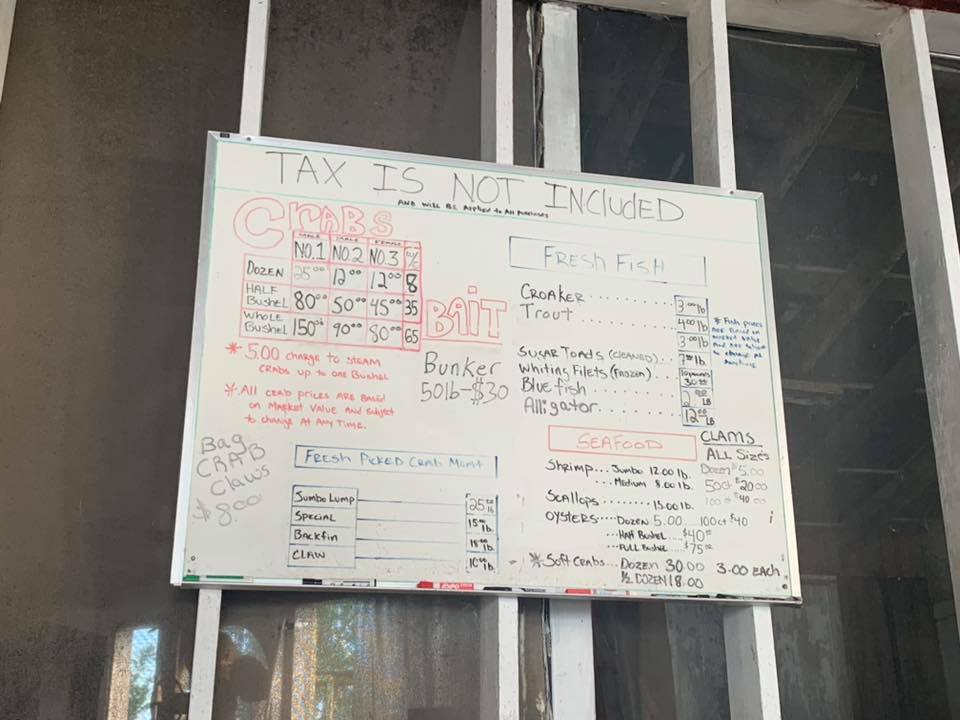 TAX IS NOT INCLUDED
AND WILL BE Applied to All purchases
CRABS
MALE MALE FEMALE
NO.1 NO.2 NO.3
DOZEN 25⁰⁰ 12⁰⁰ 12⁰⁰ 8
HALF BUSHEL 80⁰⁰ 50⁰⁰ 45⁰⁰ 35
WHOLE BUSHEL 150⁰⁰ 90⁰⁰ 80⁰⁰ 65
* 5.00 CHARGE TO STEAM
CRABS UP TO ONE BUSHEL
* ALL CRAB PRICES ARE BASED
on MARKET VALUE AND SUBJECT
to CHANGE AT ANY TIME.
BAIT
Bunker
50lb-$30
Bag
CRAB
Claws
$8.00
FRESH PICKED CRAB MEAT
Jumbo Lump 25⁰⁰ lb
SPECIAL 15⁰⁰ lb.
BACKFIN 18⁰⁰ lb.
CLAW 10⁰⁰ lb.
FRESH FISH
CROAKER 3.00 lb
Trout 4.00 lb
3.00 lb
SUGAR TOADS (CLEANED) 7⁰⁰ lb.
Whiting Filets (FROZEN) 30.00
Bluefish 2. LB
Alligator 12⁰⁰ LB
* Fish prices
are based on
market value
and are subject
to change at
anytime
SEAFOOD
Shrimp... Jumbo 12.00 lb.
Medium 8.00 lb.
Scallops 15.00 lb.
OYSTERS DOZEN 5.00 100ct $40
HALF Bushel $40⁰⁰
FULL Bushel $75⁰⁰
* Soft Crabs... DOZEN 30.00 3.00 EACH
½ DOZEN 18.00
CLAMS
ALL SIZES
Dozen $5.00
50ct $20.00
100ct $40.00